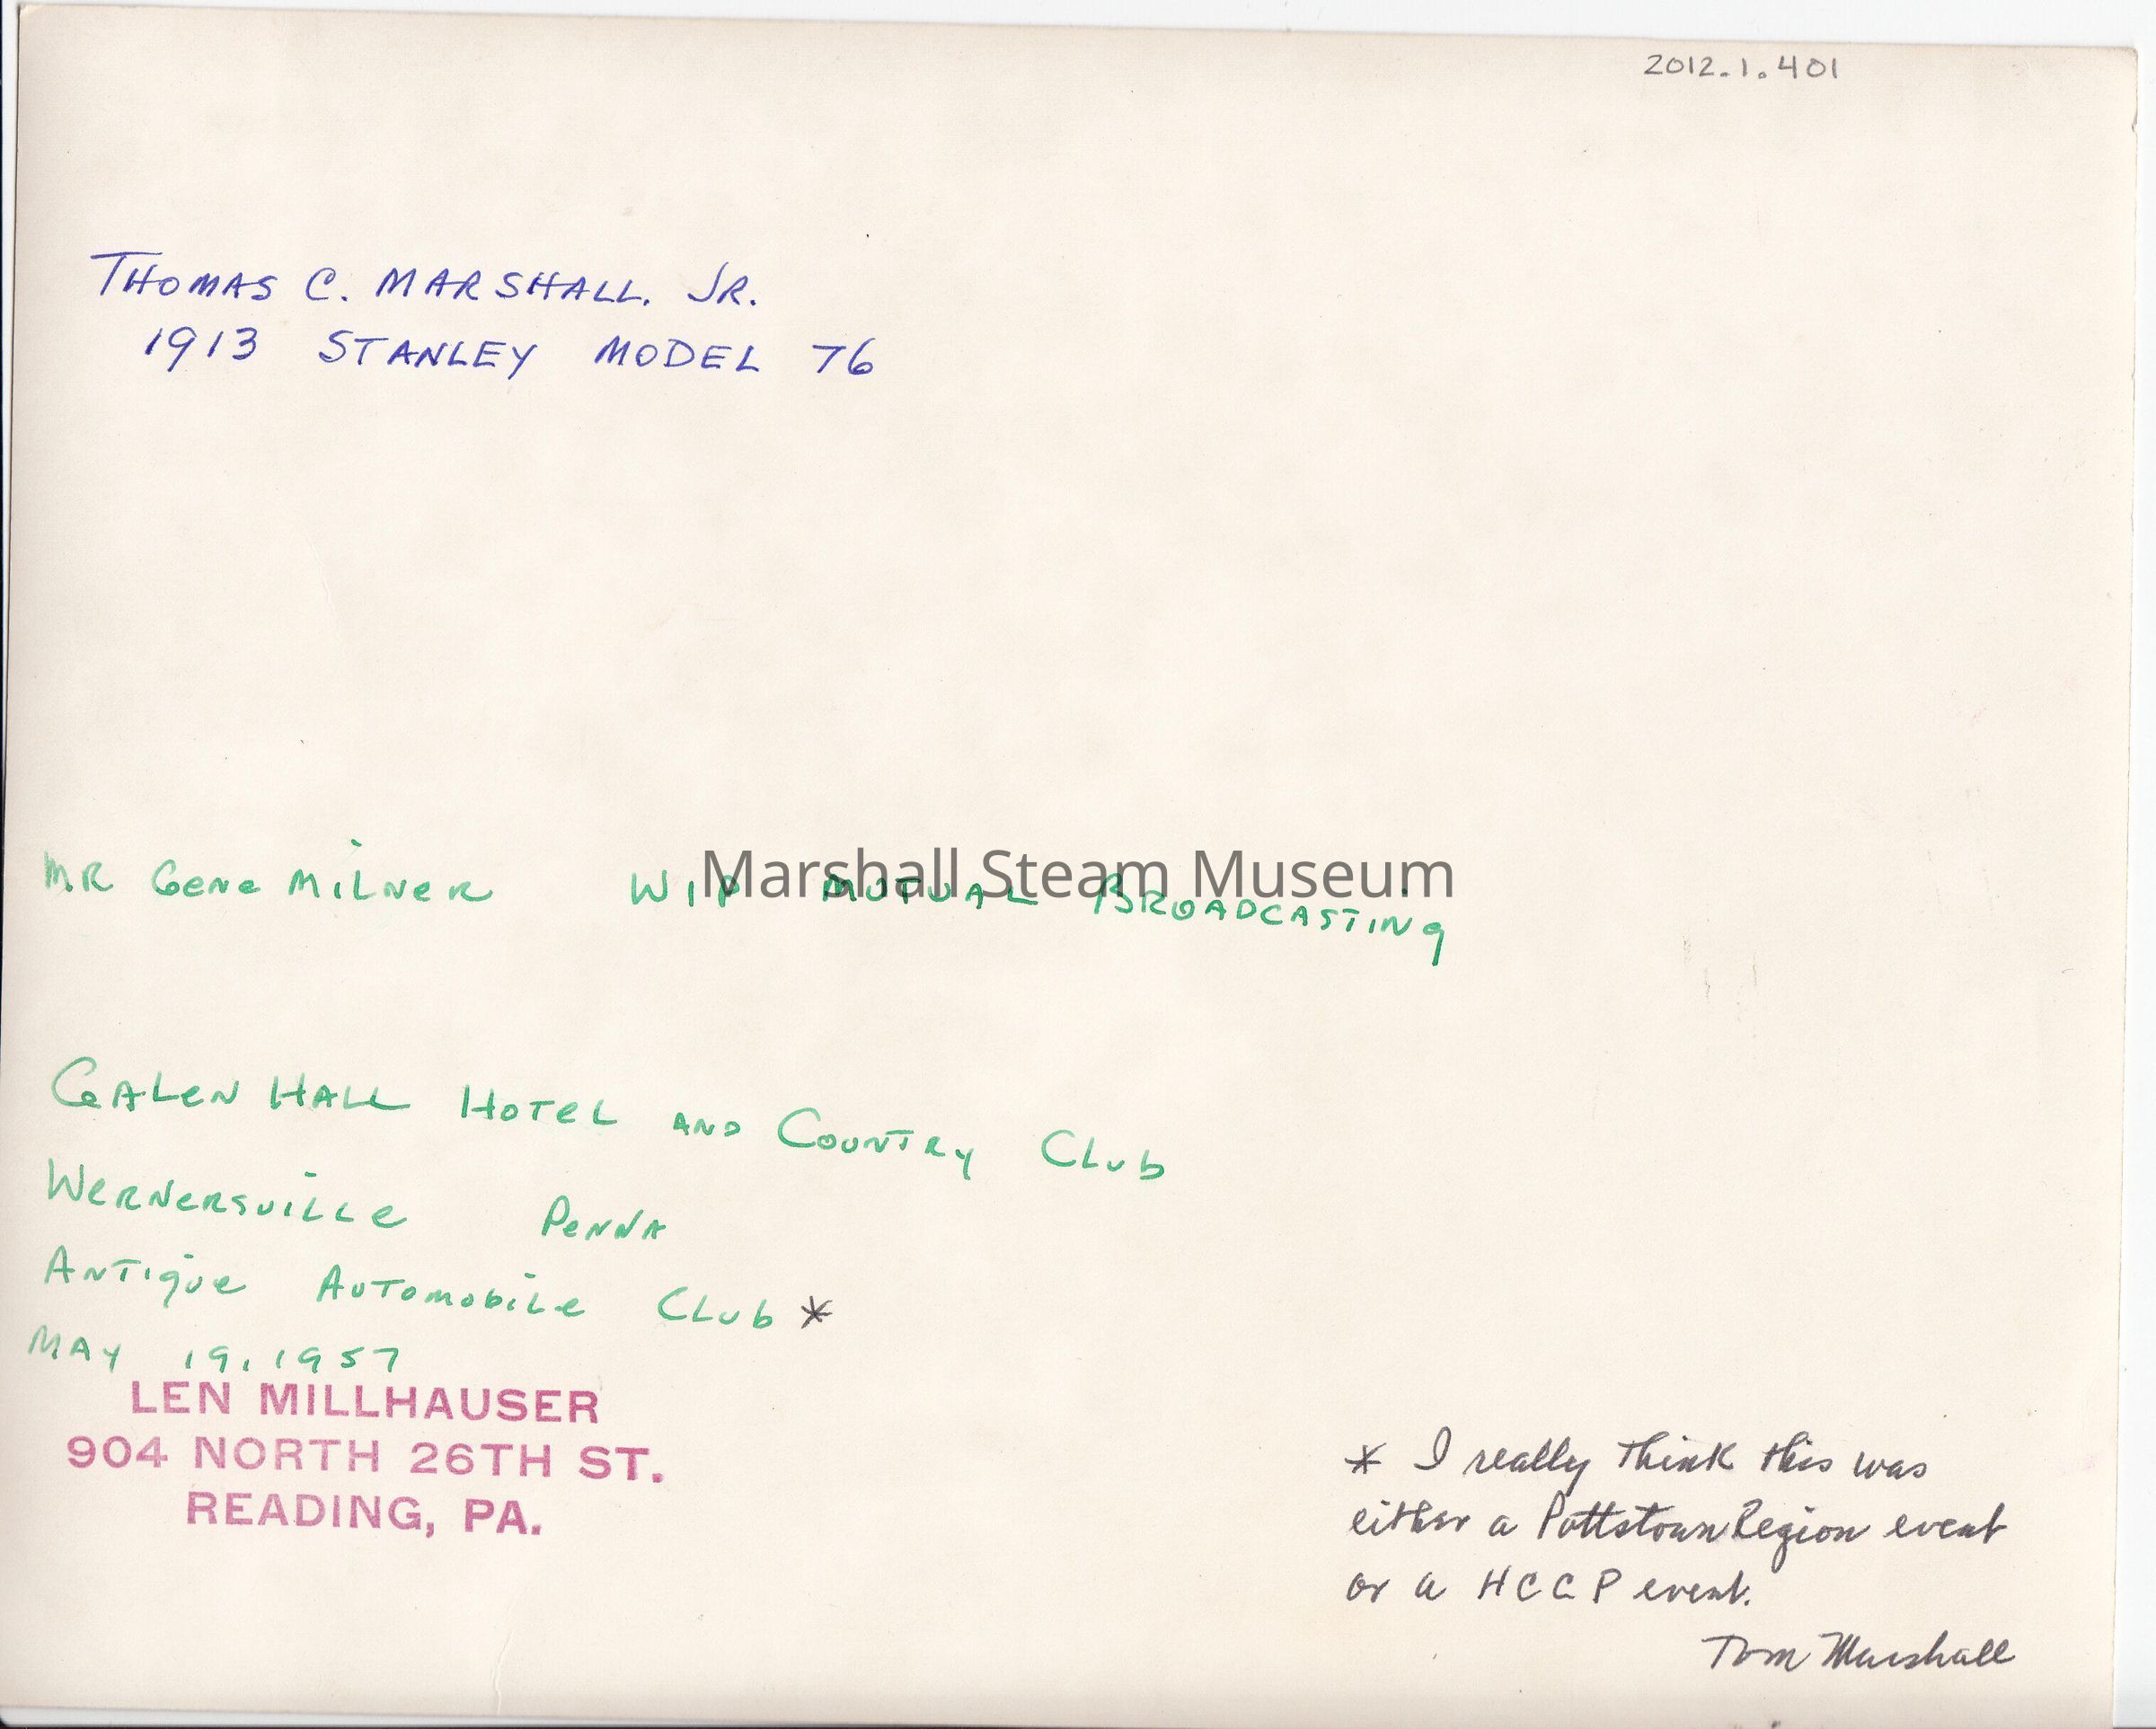 2012.1.401
THOMAS C. MARSHALL. JR.
1913 STANLEY MODEL 76
Marshall Steam Museum
MR Gene MiLNeR WIP MUTUAL BROADCASTING
GALeN HALL HOTeL AND COUNTRY CLub
WeRNeRSviLLe PeNNA
ANTique AUTOmobiLe CLub *
MAY 19, 1957
LEN MILLHAUSER
904 NORTH 26TH ST.
READING, PA.
* I really think this was
either a Pottstown Region event
or a HCCP event.
Tom Marshall